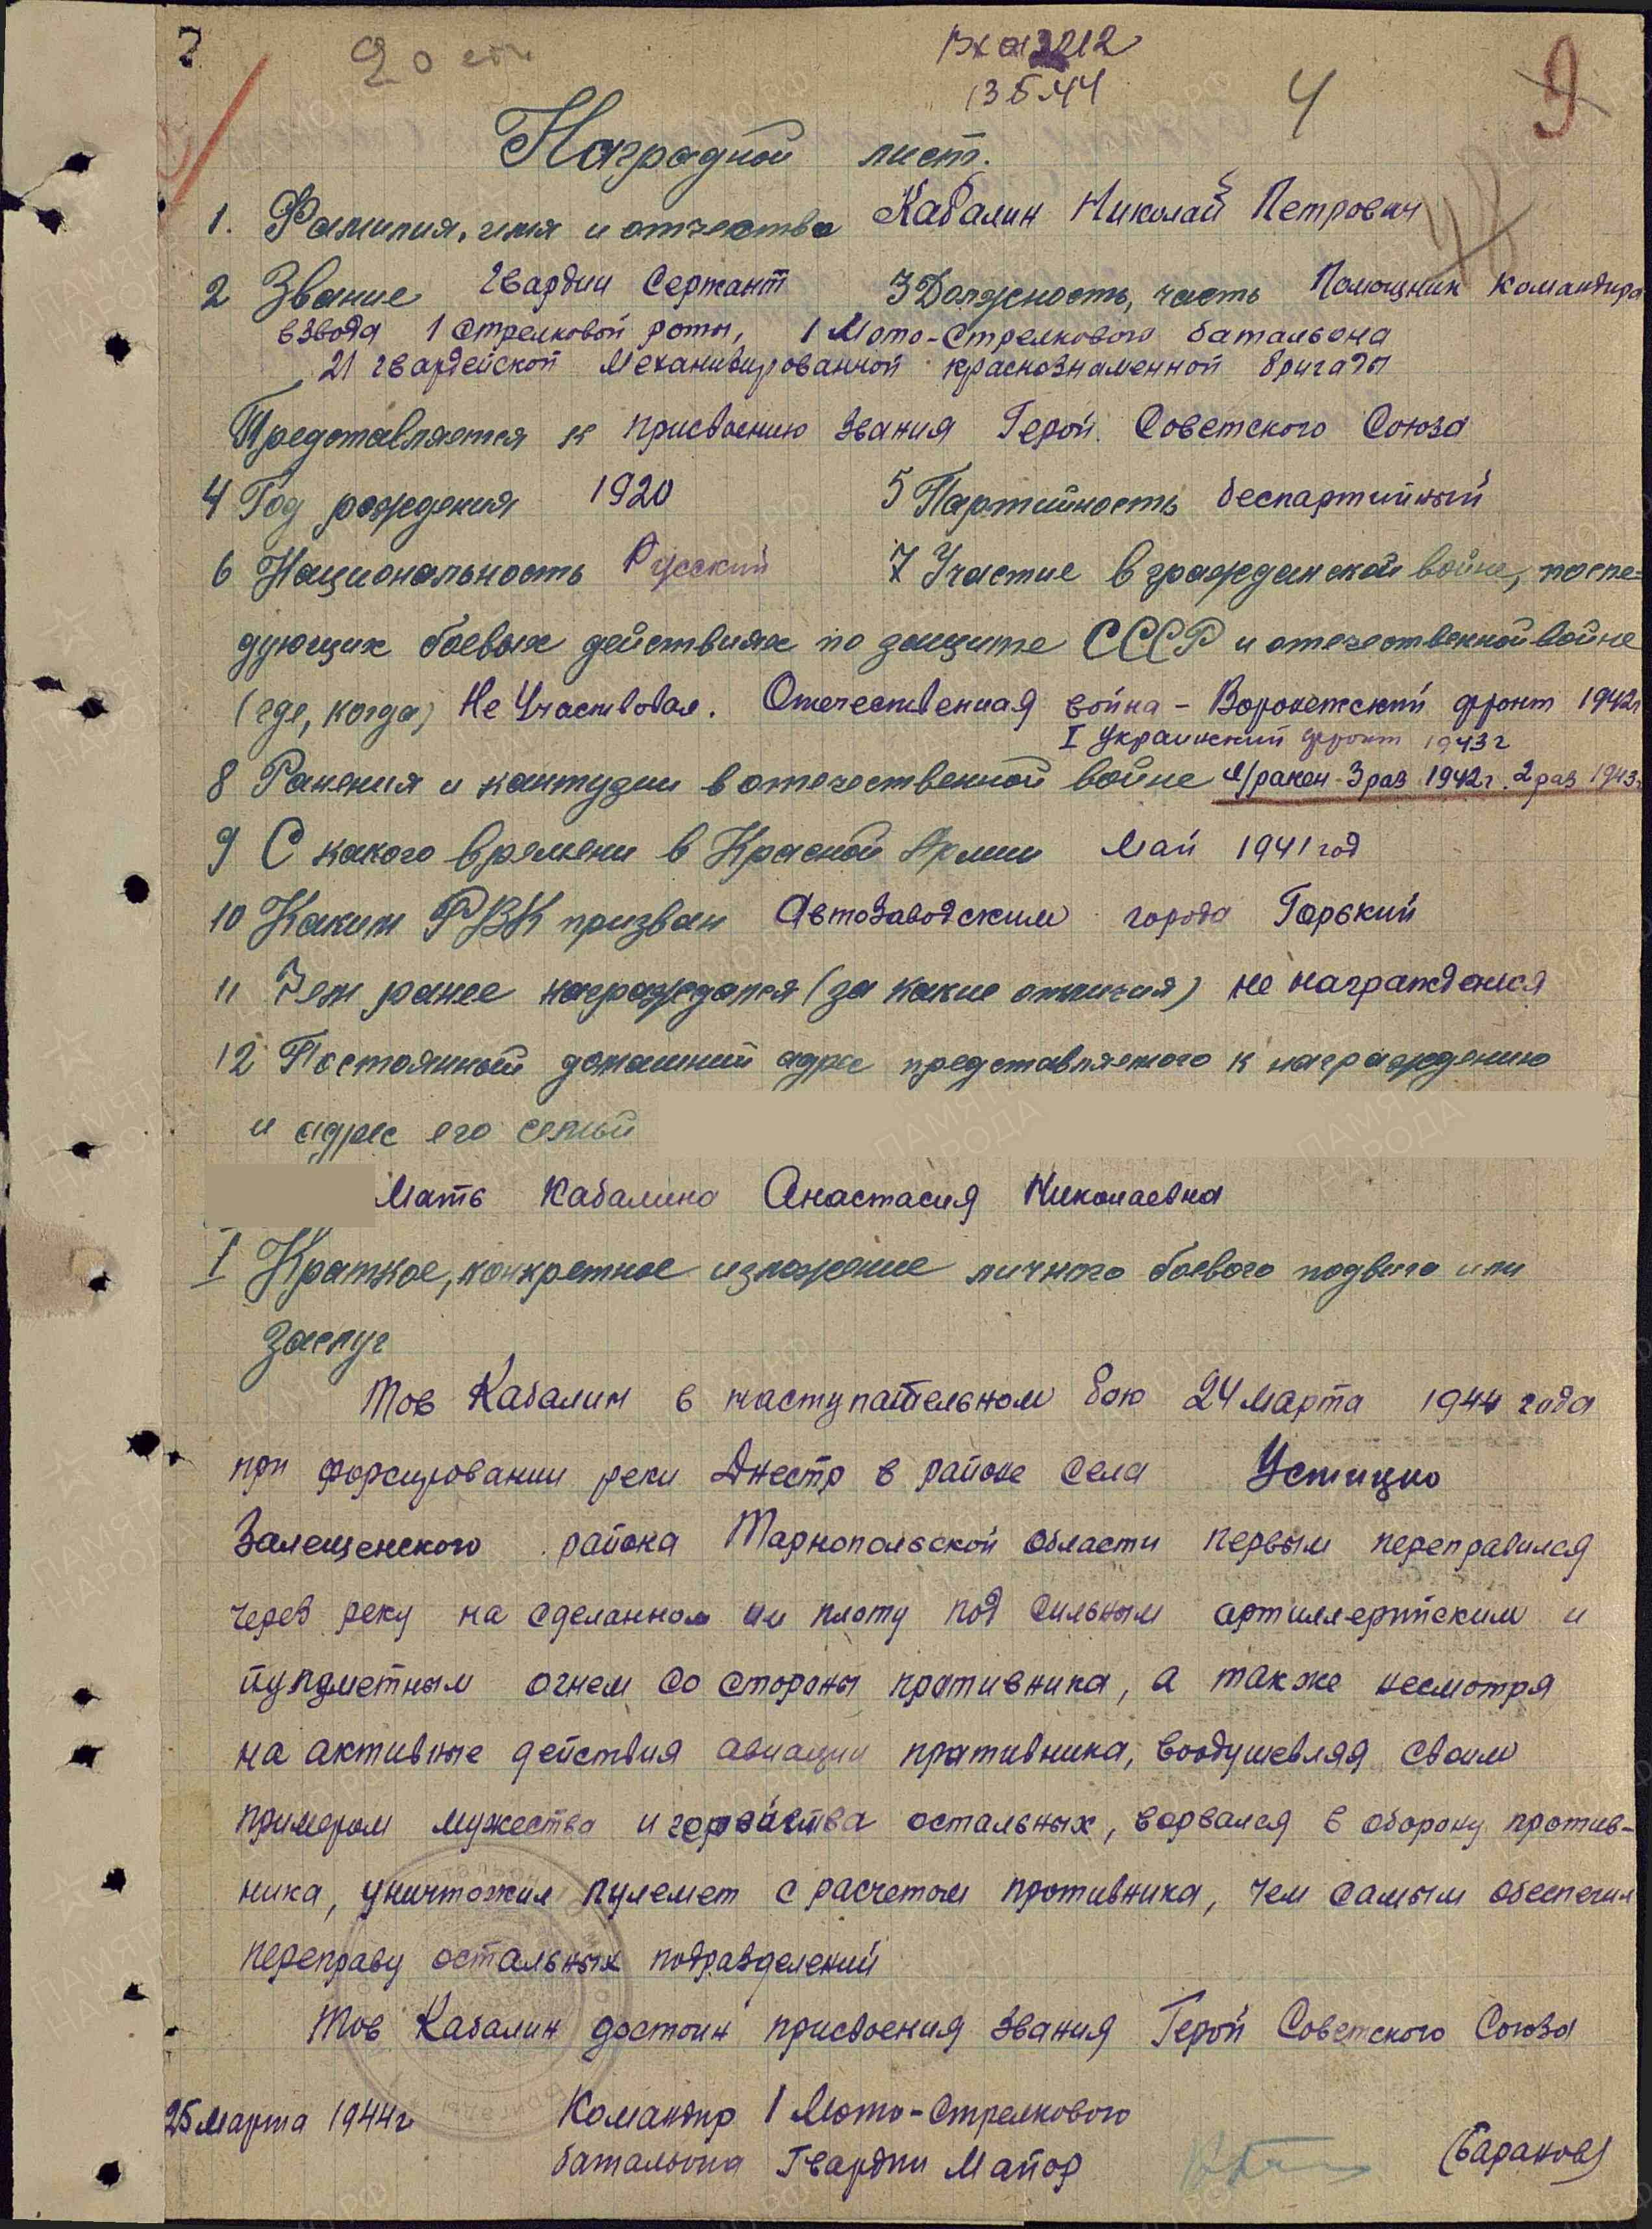 2
Вх 013212
13.5.44
4
9
Наградной лист.
1. Фамилия, имя и отчество Кабалин Николай Петрович
2 Звание Гвардии Сержант 3 Должность, часть Помощник командира
взвода 1 Стрелковой роты, 1 Мото-Стрелкового батальона
21 гвардейской Механизированной краснознаменной бригады
Представляется к присвоению звания Герой Советского Союза
4 Год рождения 1920 5 Партийность беспартийный
6 Национальность Русский 7 Участие в гражданской войне, после-
дующих боевых действиях по защите СССР и отечественной войне
(где, когда) Не Участвовал. Отечественная война - Воронежский фронт 1942г
I Украинский фронт 1943г
8 Ранения и контузии в отечественной войне л/ранен 3 раз 1942г. 2 раз 1943г
9 С какого времени в Красной Армии Май 1941 год
10 Каким РВК призван Автозаводским города Горький
11 Чем ранее награждался (за какие отличия) не награждался
12 Постоянный домашний адрес представляемого к награждению
и адрес его семьи
Мать Кабалина Анастасия Николаевна
I Краткое, конкретное изложение личного боевого подвига или
заслуг
Тов Кабалин в наступательном бою 24 марта 1944 года
при форсировании реки Днестр в районе села Устицко
Залещенского района Тарнопольской области первым переправился
через реку на сделанном им плоту под сильным артиллерийским и
пулеметным огнем со стороны противника, а также несмотря
на активные действия авиации противника, воодушевляя своим
примером мужества и геройства остальных, ворвался в оборону против-
ника, уничтожил пулемет с расчетом противника, чем самым обеспечил
переправу остальных подразделений
Тов Кабалин достоин присвоения звания Герой Советского Союза
25 марта 1944г Командир 1 Мото-стрелкового
батальона Гвардии Майор (Баранов)